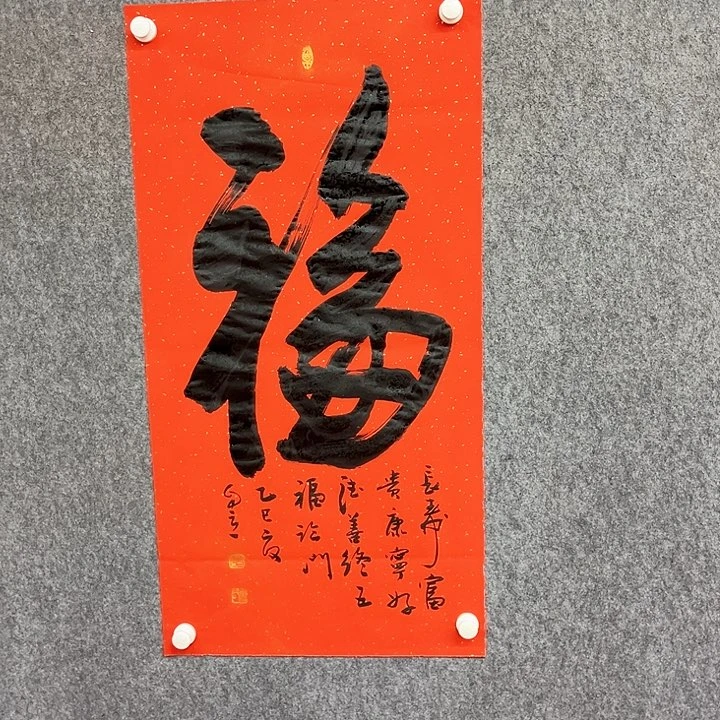 福
長壽富
貴康寧好
德善終五
福臨門
乙巳